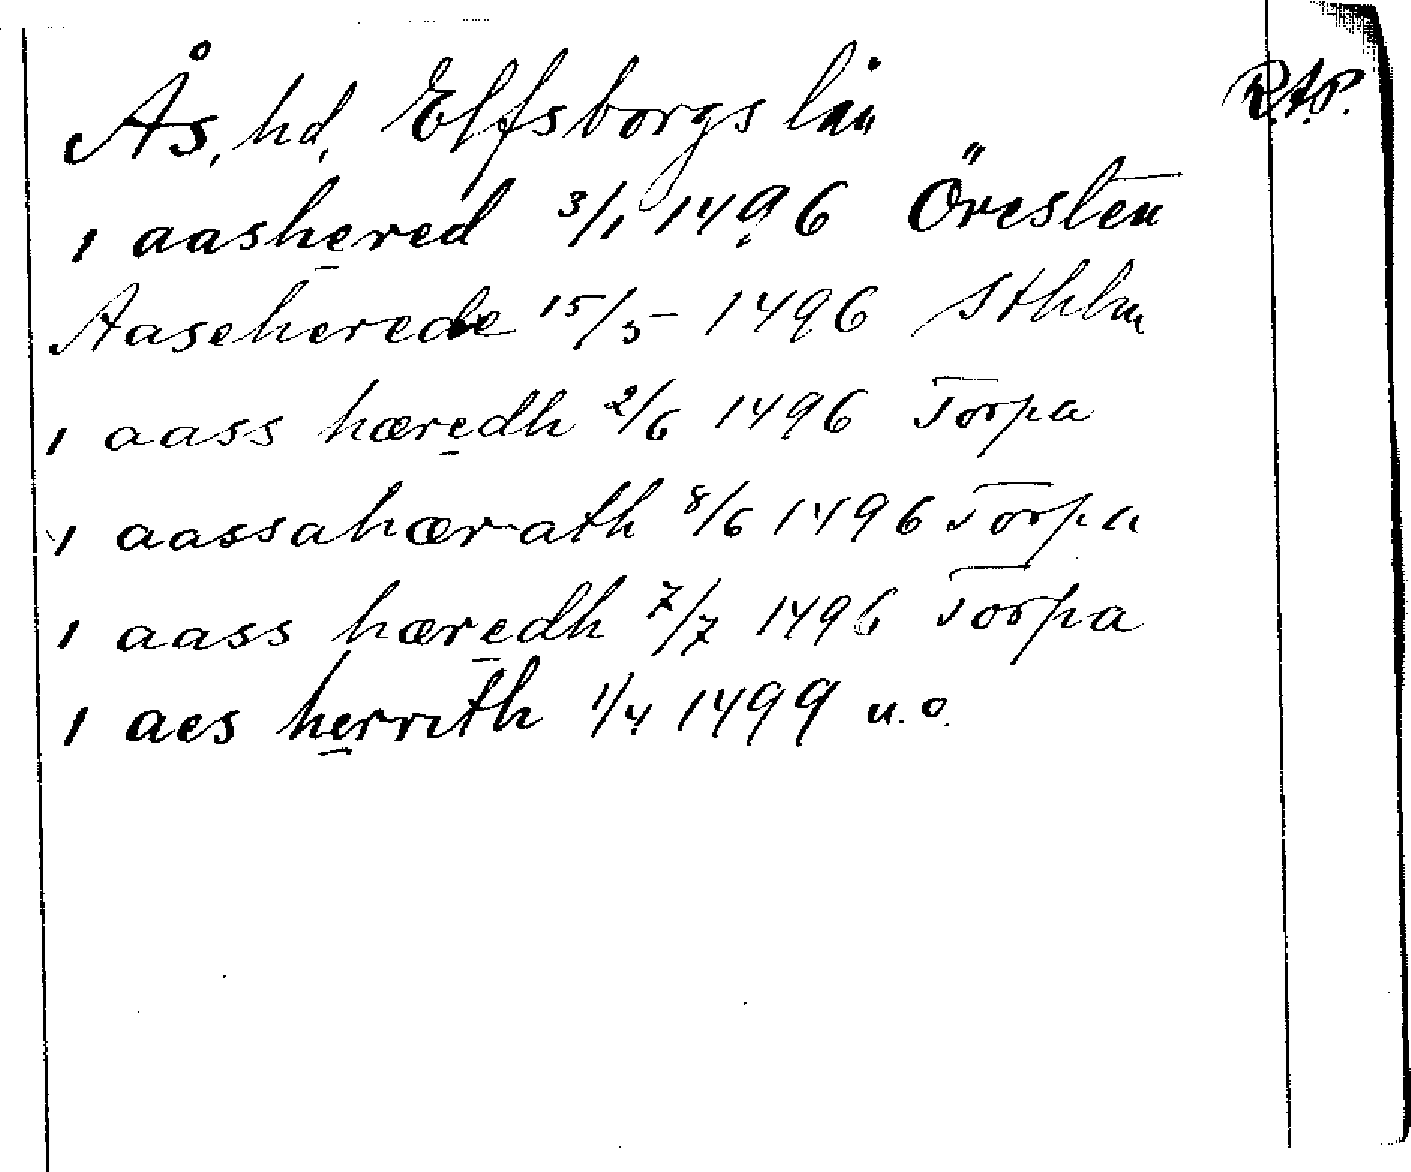 Ås, hd, Elfsborgs län R.A.P.
ı aashered 3/1 1496 Öresten
Aaseherede 15/5 1496 Sthlm
ı aass hæredh 2/6 1496 Torpa
ı aassahærath 8/6 1496 Torpa
ı aass hæredh 7/7 1496 Torpa
ı aes herrith 1/4 1499 u.o.